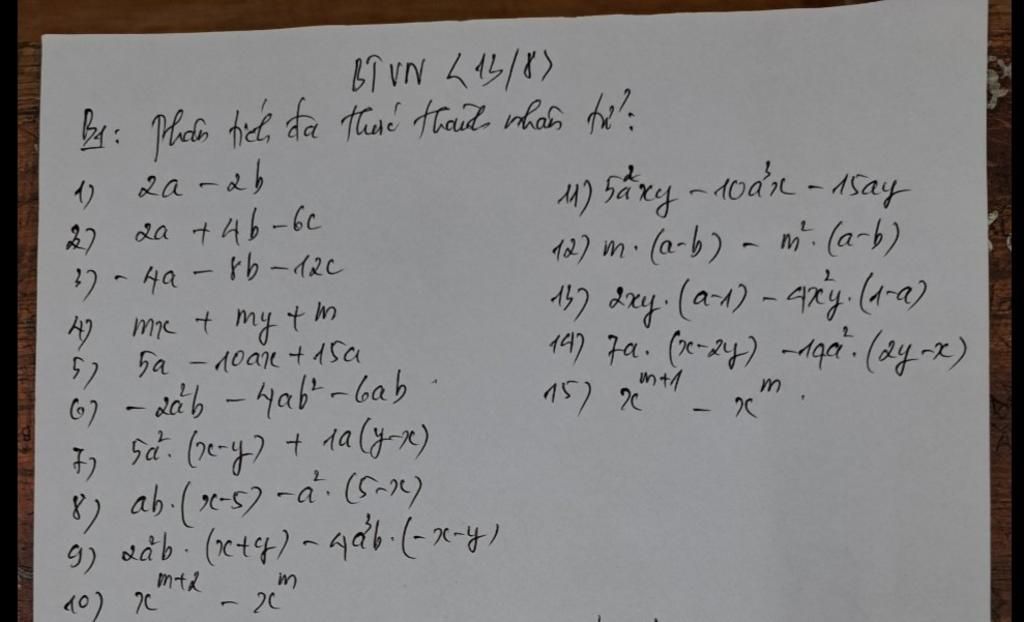 BTVN <13/8>
B1: Phân tích đa thức thành nhân tử:
1) 2a - 2b
2) 2a + 4b - 6c
3) - 4a - 8b - 12c
4) mx + my + m
5) 5a - 10ax + 15a
6) - 2a²b - 4ab² - 6ab
7) 5a². (x-y) + 1a(y-x)
8) ab.(x-5) - a². (5-x)
9) 2a²b . (x+y) - 4a³b.(-x-y)
10) x^{m+2} - x^{m}
11) 5a²xy - 10a³x - 15ay
12) m. (a-b) - m². (a-b)
13) 2xy. (a-1) - 4x²y. (1-a)
14) 7a. (x-2y) - 14a². (2y-x)
15) x^{m+1} - x^{m}.